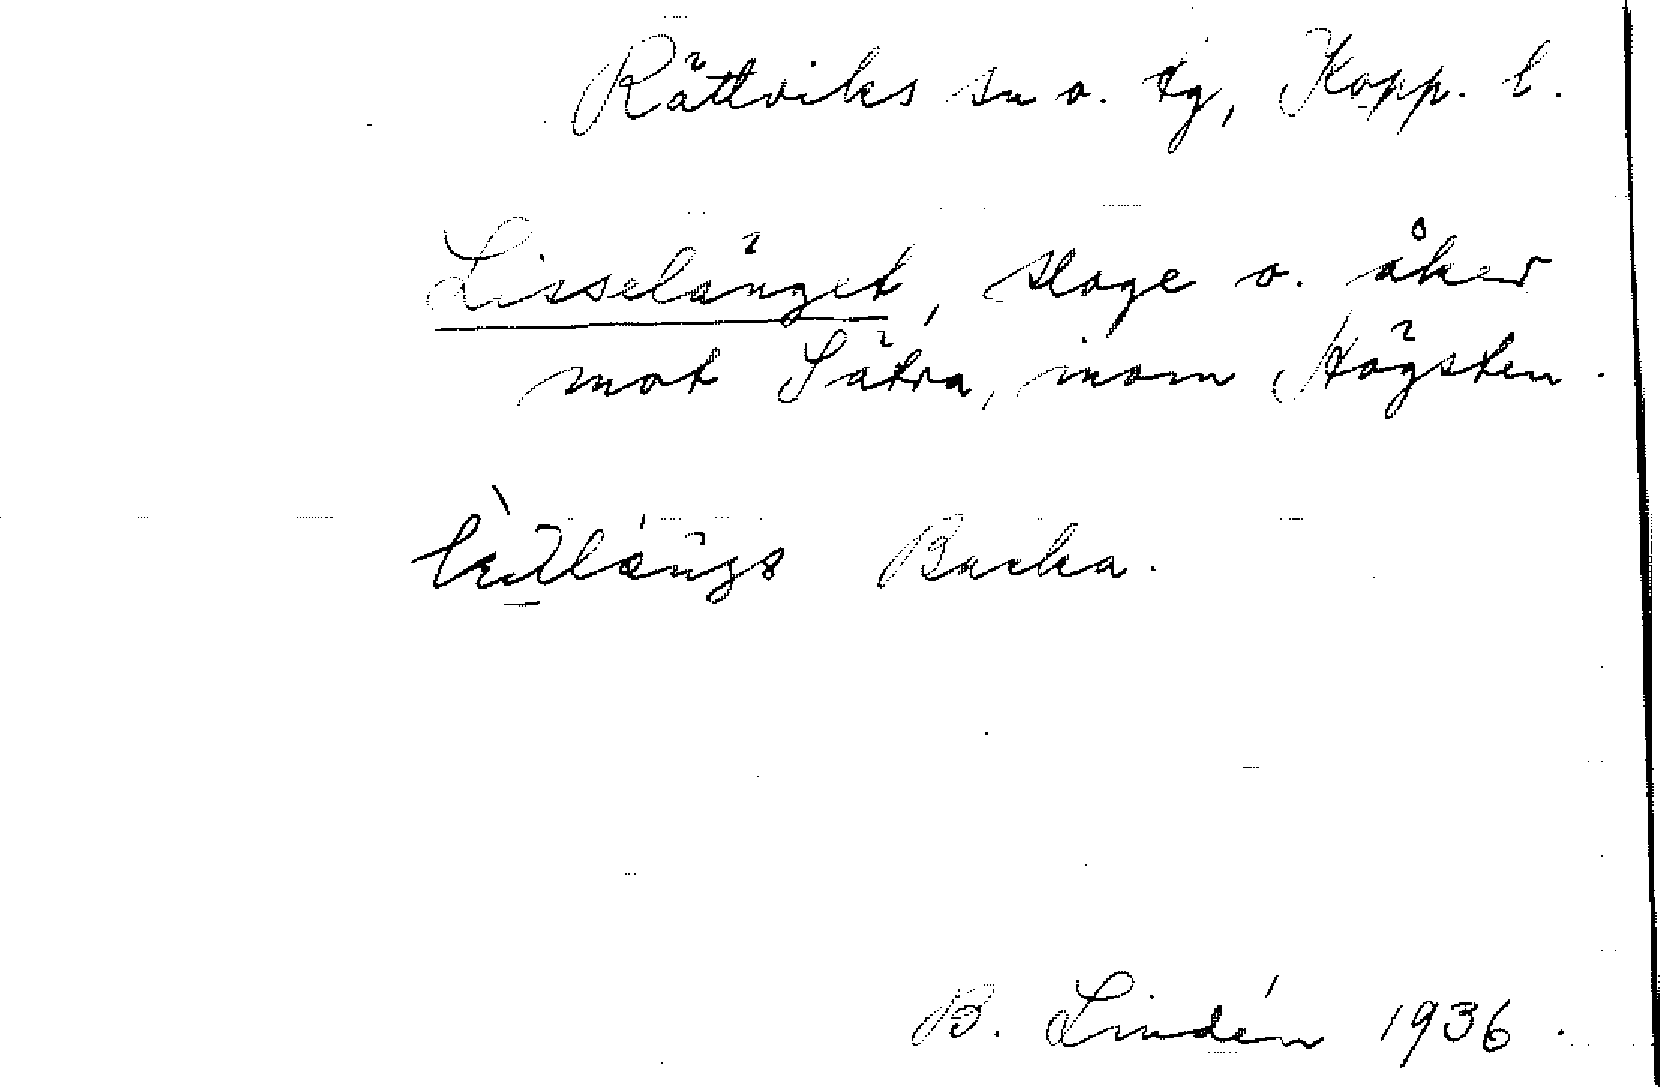 Rättviks sn o. tg, Kopp. l.
Lisselänget, sloge o. åker
mot Sätra, inom Högsten.
Backa.
B. Lindén 1936.